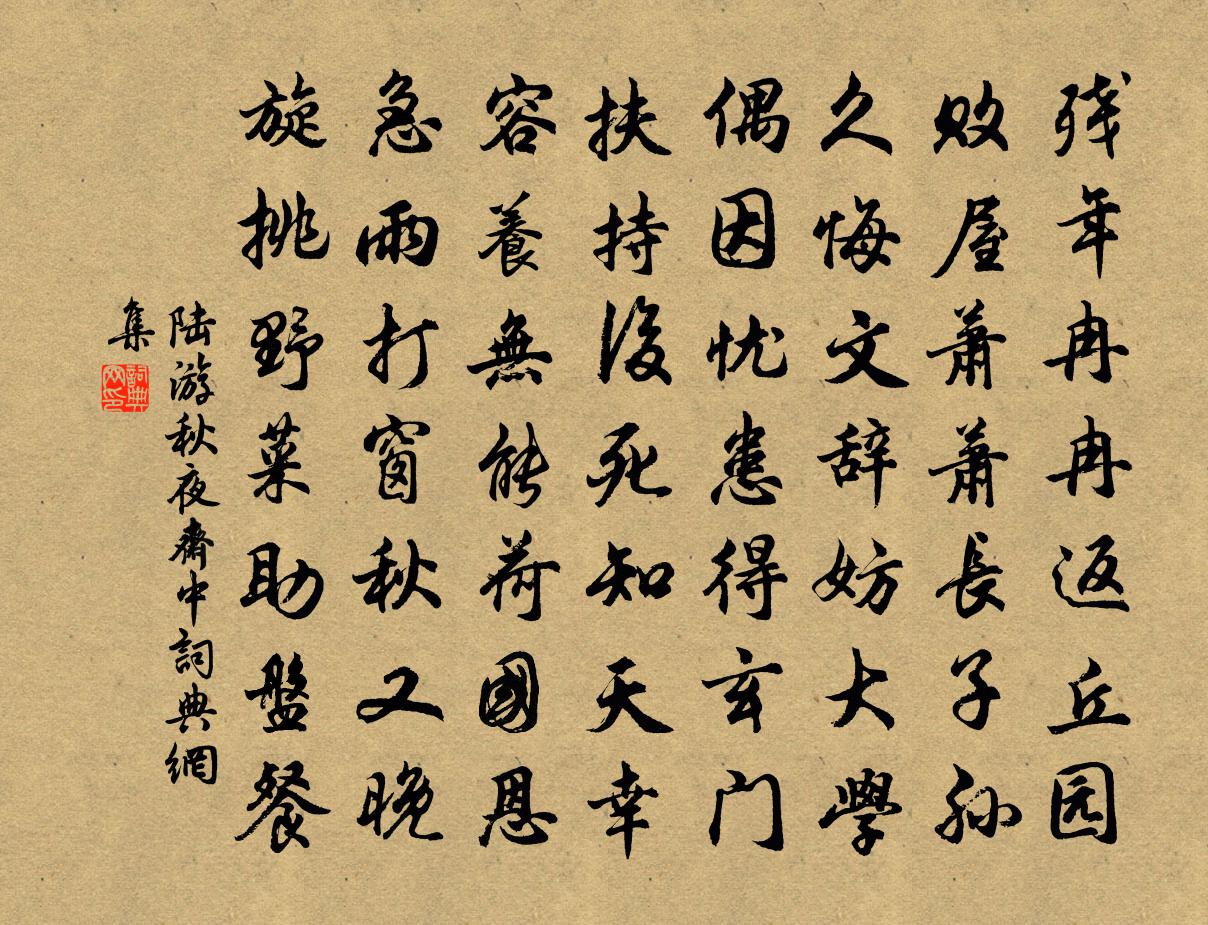 残年冉冉返丘园
败屋萧萧長子孙
久悔文辞妨大學
偶因忧患得玄门
扶持後死知天幸
容養無能荷國恩
急雨打窗秋又晚
旋挑野菜助盤餐
陆游秋夜齋中詞典網
集
詞典网印